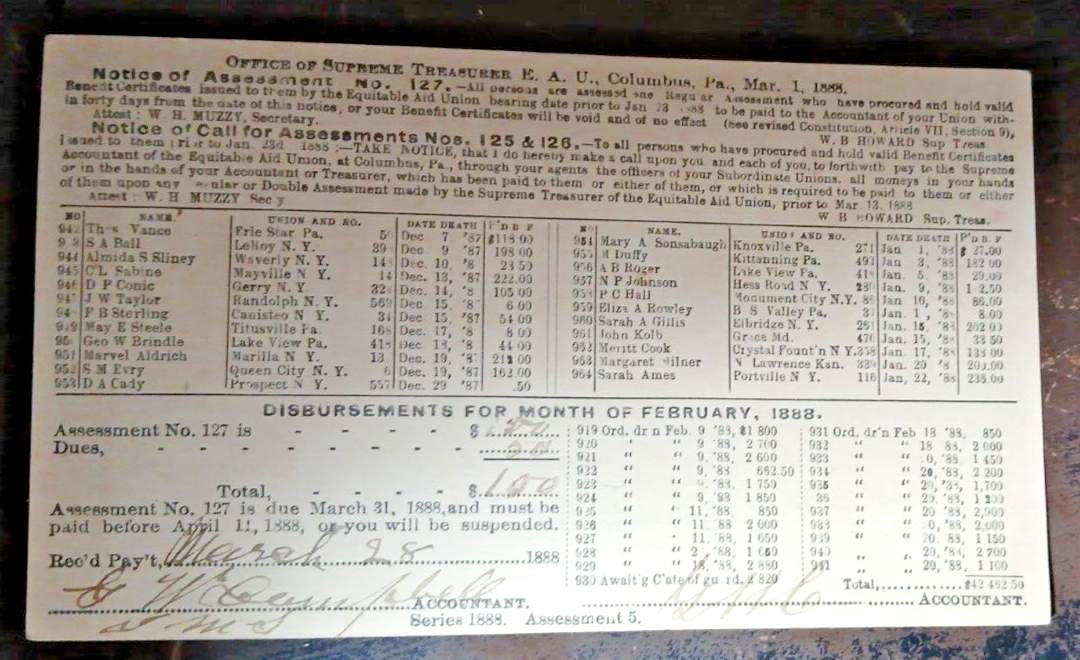 OFFICE OF SUPREME TREASURER E. A. U., COLUMBUS, PA., MAR. 1, 1888.
Notice of Assessment No. 127.—All persons are assessed one Regular Assessment who have procured and hold valid
Benefit Certificates issued to them by the Equitable Aid Union bearing date prior to Jan 23 to be paid to the Accountant of your Union with-
in forty days from the date of this notice, or your Benefit Certificates will be void and of no effect (See revised Constitution, Article VII, Section 9),
Attest: W. H. MUZZY, Secretary. W. B HOWARD Sup Treas
Notice of Call for Assessments Nos. 125 & 126.—To all persons who have procured and hold valid Benefit Certificates
issued to them prior to Jan. 23d 1888 :—TAKE NOTICE, that I do hereby make a call upon you and each of you, to forthwith pay to the Supreme
Accountant of the Equitable Aid Union, at Columbus, Pa., through your agents the officers of your Subordinate Unions, all moneys in your hands
or in the hands of your Accountant or Treasurer, which has been paid to them or either of them, or which is required to be paid to them or either
of them upon any or Double Assessment made by the Supreme Treasurer of the Equitable Aid Union, prior to Mar. 13, 1888
Attest: W. H MUZZY Sec y W B HOWARD Sup. Treas.
NO NAME. UNION AND NO. DATE DEATH P'D B F
Vance Erie Star Pa. Dec 7, '87 $118 00
S A Ball LeRoy N. Y. 39 Dec 9 '87 198 00
944 Almida S Sliney Waverly N. Y. Dec. 10, '8 23 50
945 C L Sabine Mayville N Y. 14 Dec. 13, '87 222.00
946 D P Conic Gerry N. Y. Dec. 14, '8 105 00
J W Taylor Randolph N Y. 569 Dec 15, '8 6 00
F B Sterling Canisteo N Y. Dec. 15, '87 54 00
949 May E Steele Titusville Pa. Dec. 17, '8 8 00
Geo W Brindle Lake View Pa. Dec. 18, '8 44 00
951 Marvel Aldrich Marilla N Y. 13 Dec. 19, '87 212 00
952 S M Evry Queen City N. Y. 6 Dec. 19, '87 162 00
953 D A Cady Prospect N Y. 557 Dec. 29 '87 .50
NO NAME. UNION AND NO. DATE DEATH P'D B. F
954 Mary A Sonsabaugh Knoxville Pa. 271 Jan 1, '88 $ 27.00
955 M Duffy Kittanning Pa. 493 Jan 3, '88 182 00
956 A B Roger Lake View Pa. Jan. 5, '88 20.00
957 N P Johnson Hess Road N Y. 280 Jan. 9, '88
P C Hall Monument City N.Y. 86 Jan 10, '88 86.00
959 Eliza A Rowley B S Valley Pa. Jan. 8.00
960 Sarah A Gillis Elbridge N. Y. 261 Jan 15, '88 202 00
961 John Kolb Grace Md. 476 Jan. 15, '88 33 50
962 Merritt Cook Crystal Fount'n N Y. 358 Jan. 17, '88 133 00
963 Margaret Milner N Lawrence Kan. Jan. 20 '8 203.00
964 Sarah Ames Portville N Y. 116 Jan, 22, '88 236.00
DISBURSEMENTS FOR MONTH OF FEBRUARY, 1888.
Assessment No. 127 is - - - - $
Dues, - - - - - - - -
Total, - - - - $ 1 00
Assessment No. 127 is due March 31, 1888, and must be
paid before April 11, 1888, or you will be suspended.
Rec'd Pay't, March 28 1888
G W Campbell ACCOUNTANT.
919 Ord. dr n Feb. 9 '88, $1 800
920 " " 9 '88, 2 700
921 " " 9. '88, 2 600
922 " " 9, '88 662.50
923 " " '88, 1 750
924 " " 9, '88 1 850
925 " " 11, '88 850
926 " " 11, 88 2 000
927 " " 11, '88 1 050
928 " "
929 " " '88, 2 880
930 Await'g C'ate of guard. 2 820
931 Ord. dr'n Feb 18 '88, 850
932 " " 18 88, 2 000
933 " " '88, 1 450
934 " " 20, '88, 2 200
935 " " 20, '88, 1,700
36 " " 20, '88,
937 " " 20 '88, 2,900
" " '88, 2,000
" " 20 '88, 1 150
940 " " 20, '88, 2 700
941 " " 20, '88, 1 100
Total, $42 482 50
ACCOUNTANT.
Series 1888. Assessment 5.